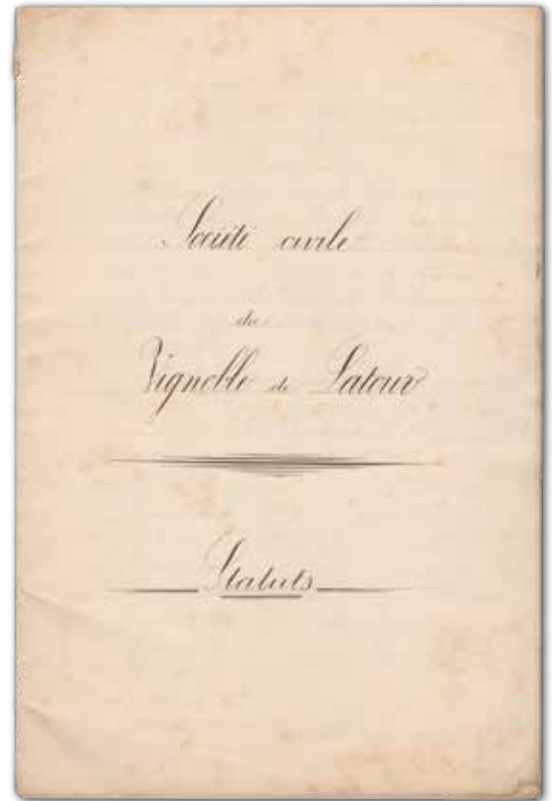 Société civile
du
Vignoble de Latour
Statuts